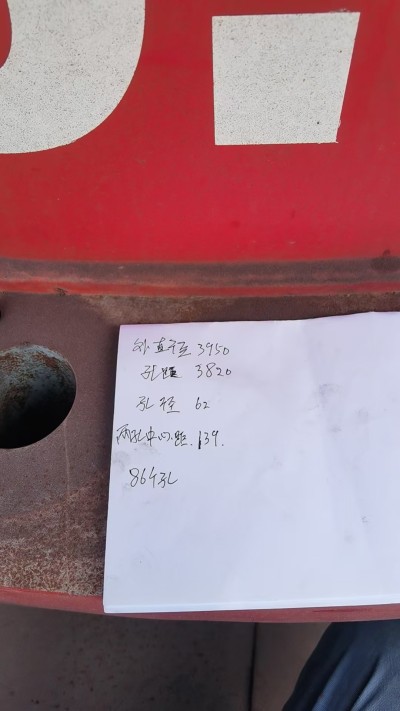 外直径 3950
孔距 3820
孔径 62
两孔中心距.139.
86个孔